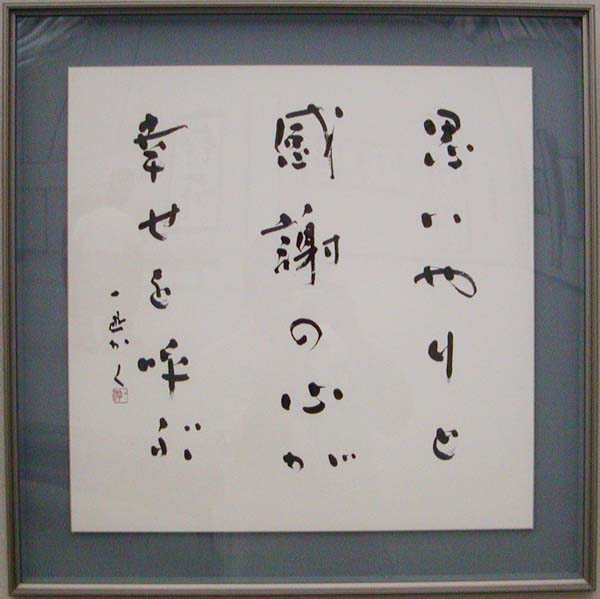 思いやりと
感謝の心が
幸せを呼ぶ
かく